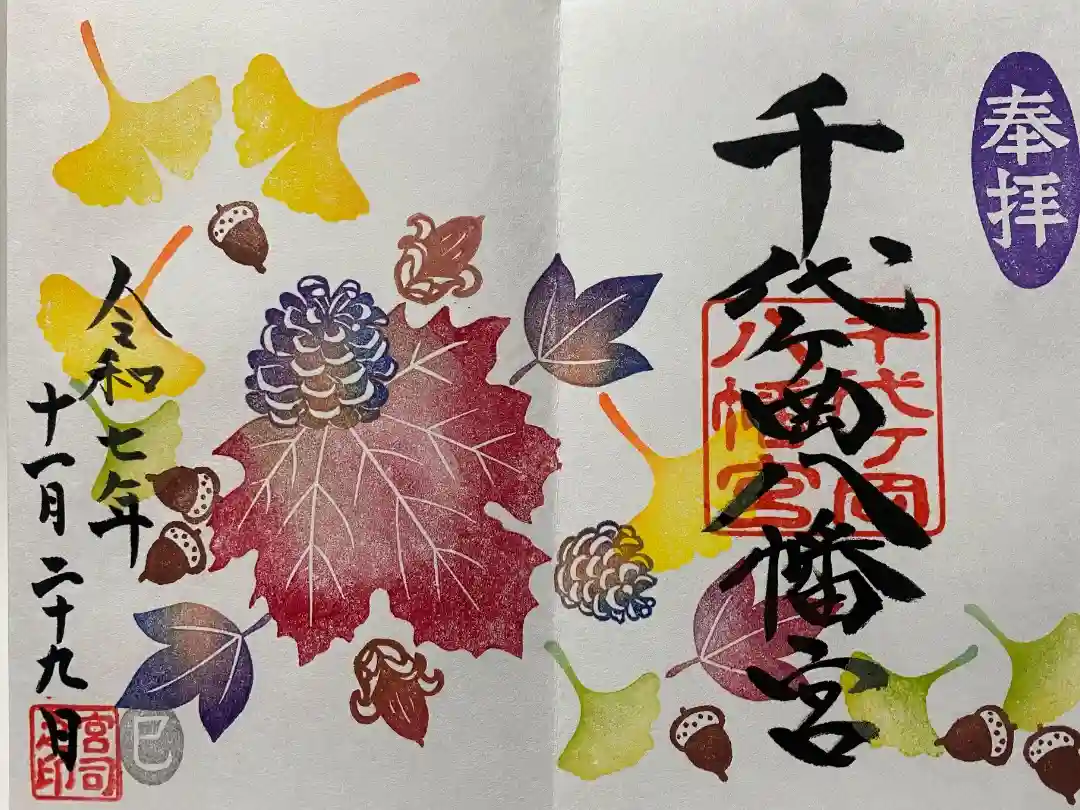 奉拝
千代ヶ岡八幡宮
千代ヶ岡
八幡宮
令和七年
十一月二十九日
宮司
之印
巳